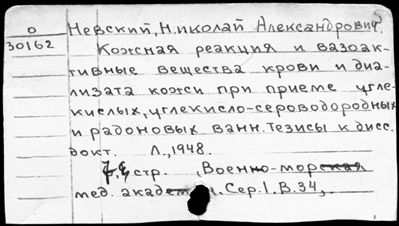 О
30162
Невский, Николай Александрович.
Кожная реакция и вазоак-
тивные вещества крови и диа-
лизата кожи при приеме угле-
кислых, углекисло-сероводородных
и радоновых ванн. Тезисы к дисс.
докт. Л., 1948.
стр. , Военно-морская
мед. академия. Сер.1, В.34,